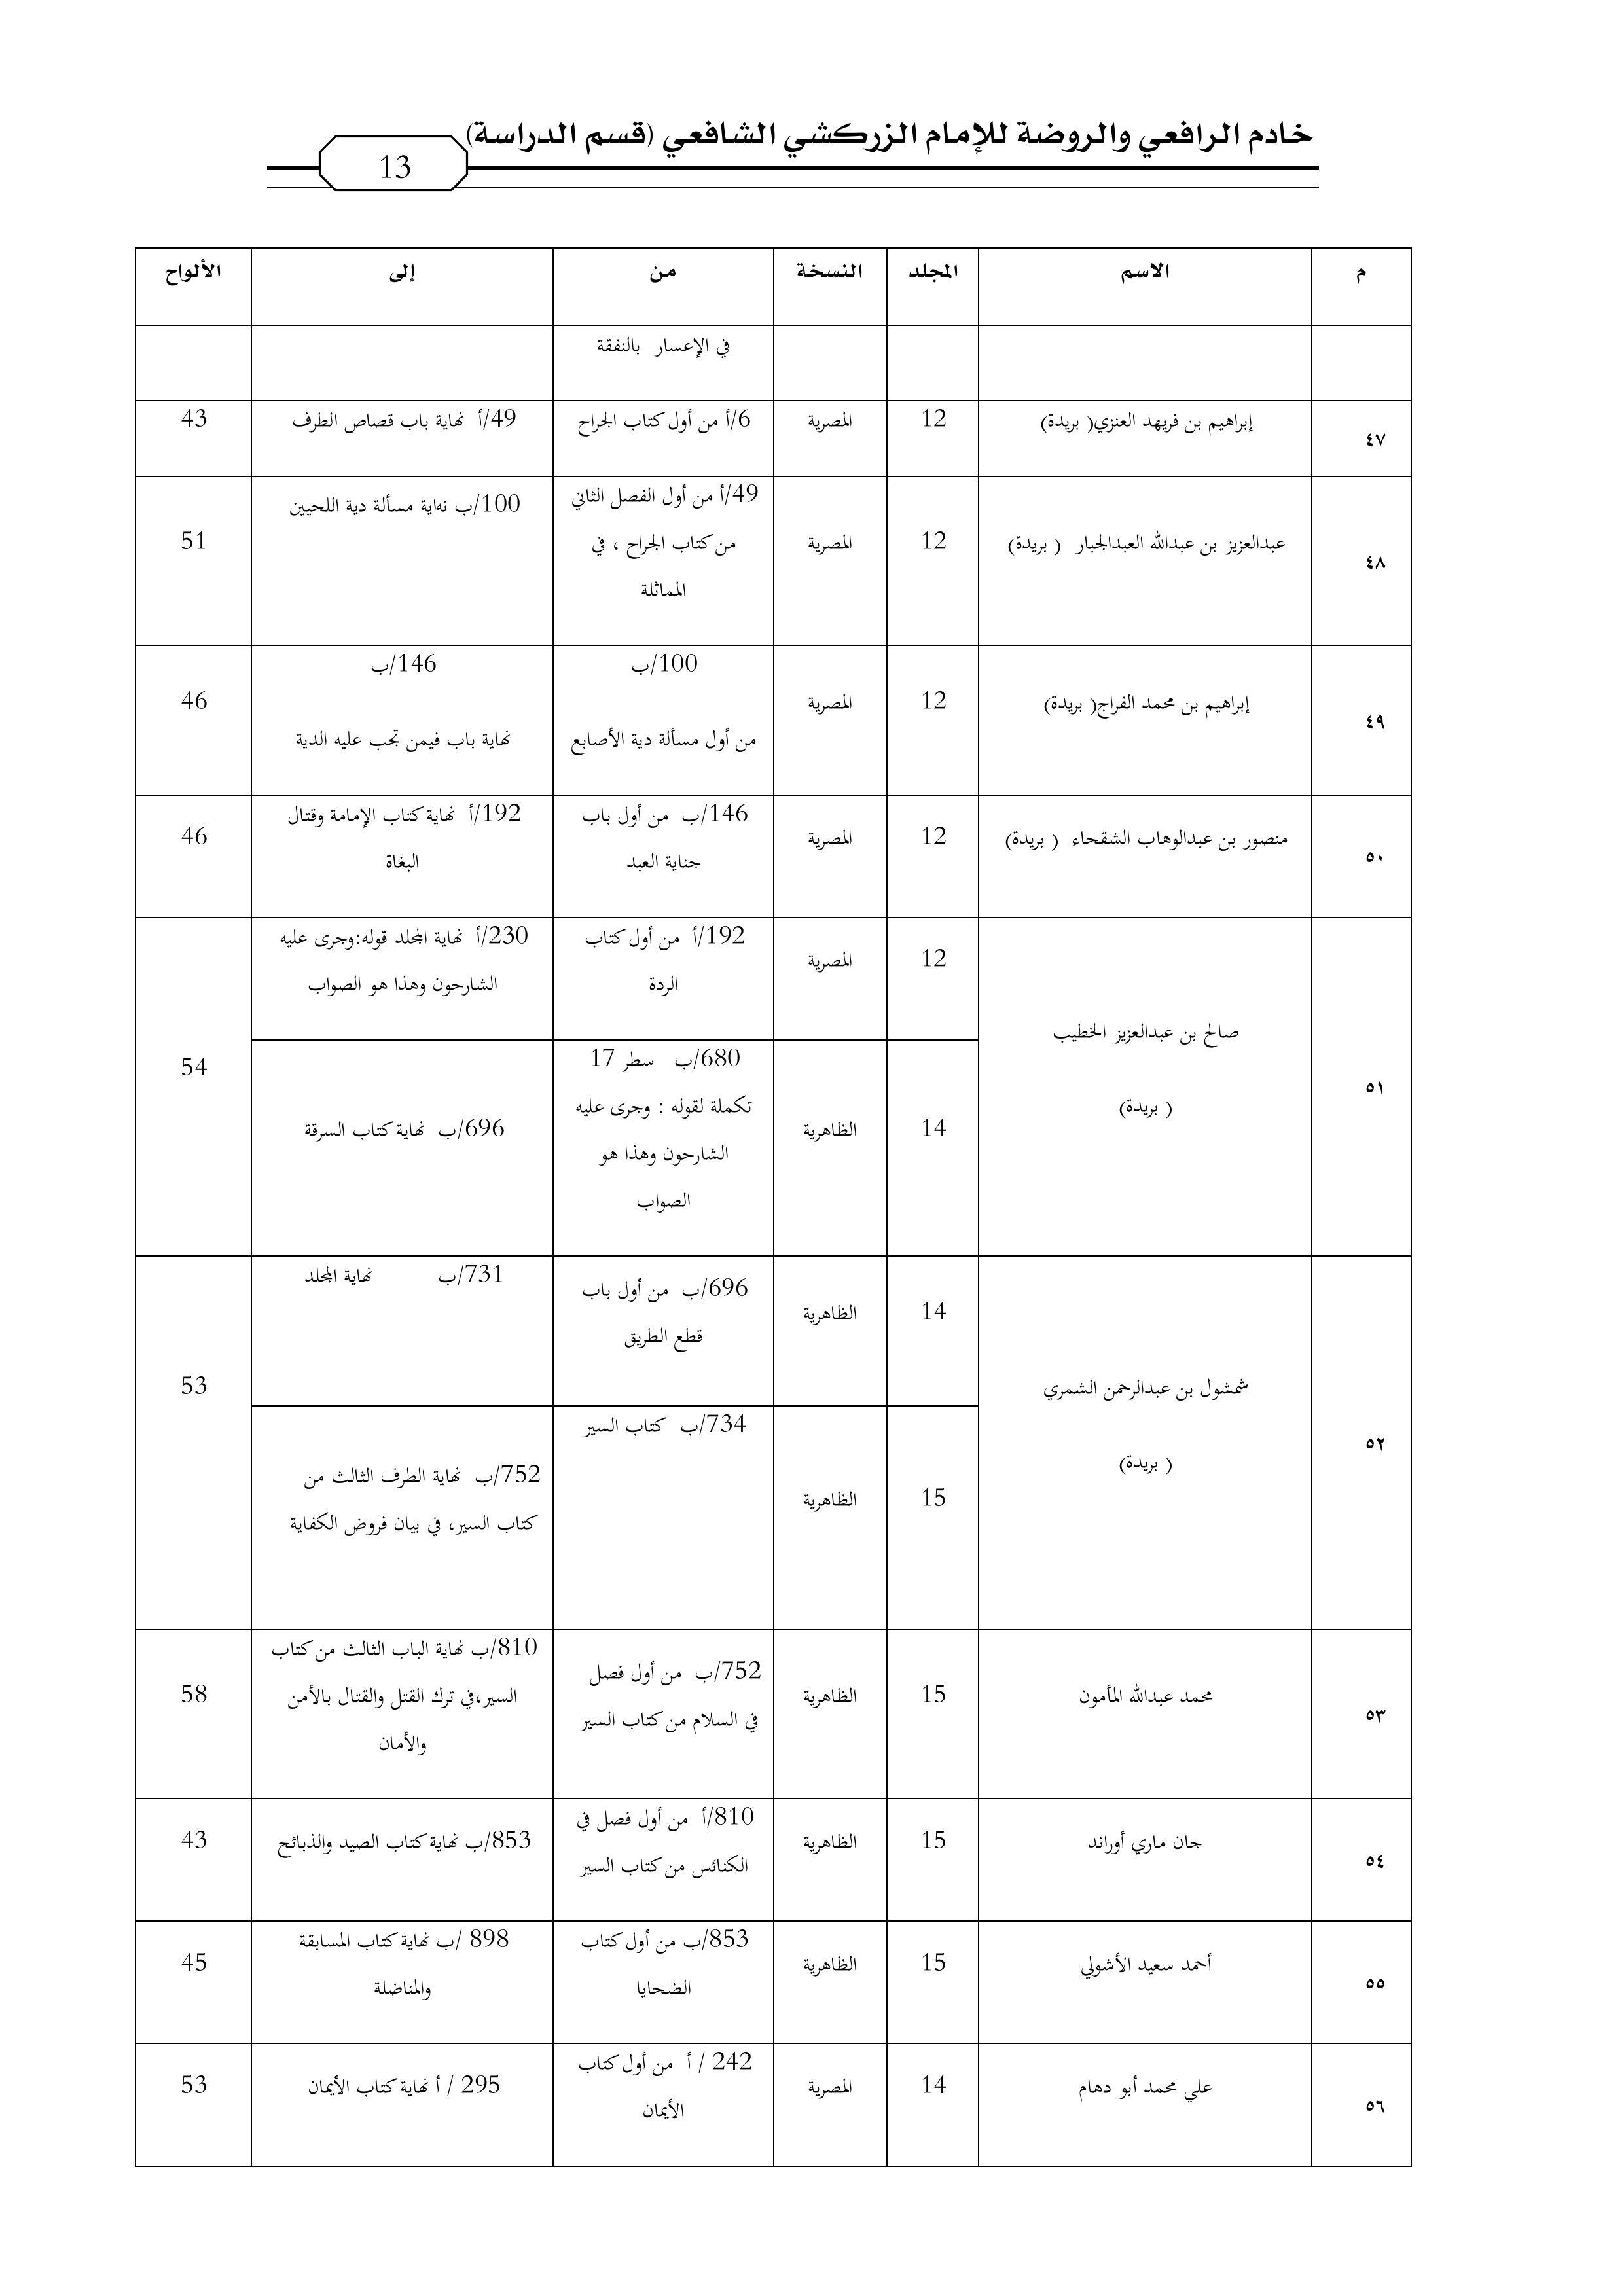 خادم الرافعي والروضة للإمام الزركشي الشافعي (قسم الدراسة)
13
م الاسم المجلد النسخة من إلى الألواح
في الإعسار بالنفقة
٤٧ إبراهيم بن فريهد العنزي( بريدة) 12 المصرية 6/أ من أول كتاب الجراح 49/أ نهاية باب قصاص الطرف 43
٤٨ عبدالعزيز بن عبدالله العبدالجبار ( بريدة) 12 المصرية
49/أ من أول الفصل الثاني
من كتاب الجراح ، في
المماثلة
100/ب نهاية مسألة دية اللحيين
51
٤٩ إبراهيم بن محمد الفراج( بريدة) 12 المصرية
100/ب
من أول مسألة دية الأصابع
146/ب
نهاية باب فيمن تجب عليه الدية
46
٥٠ منصور بن عبدالوهاب الشقحاء ( بريدة) 12 المصرية
146/ب من أول باب
جناية العبد
192/أ نهاية كتاب الإمامة وقتال
البغاة
46
٥١
صالح بن عبدالعزيز الخطيب
( بريدة)
12 المصرية
192/أ من أول كتاب
الردة
230/أ نهاية المجلد قوله:وجرى عليه
الشارحون وهذا هو الصواب
54
14 الظاهرية
680/ب سطر 17
تكملة لقوله : وجرى عليه
الشارحون وهذا هو
الصواب
696/ب نهاية كتاب السرقة
٥٢
شمشول بن عبدالرحمن الشمري
( بريدة)
14 الظاهرية
696/ب من أول باب
قطع الطريق
731/ب نهاية المجلد
53
15 الظاهرية
734/ب كتاب السير
752/ب نهاية الطرف الثالث من
كتاب السير، في بيان فروض الكفاية
٥٣ محمد عبدالله المأمون 15 الظاهرية
752/ب من أول فصل
في السلام من كتاب السير
810/ب نهاية الباب الثالث من كتاب
السير،في ترك القتل والقتال بالأمن
والأمان
58
٥٤ جان ماري أوراند 15 الظاهرية
810/أ من أول فصل في
الكنائس من كتاب السير
853/ب نهاية كتاب الصيد والذبائح
43
٥٥ أحمد سعيد الأشولي 15 الظاهرية
853/ب من أول كتاب
الضحايا
898 /ب نهاية كتاب المسابقة
والمناضلة
45
٥٦ علي محمد أبو دهام 14 المصرية
242 / أ من أول كتاب
الأيمان
295 / أ نهاية كتاب الأيمان
53